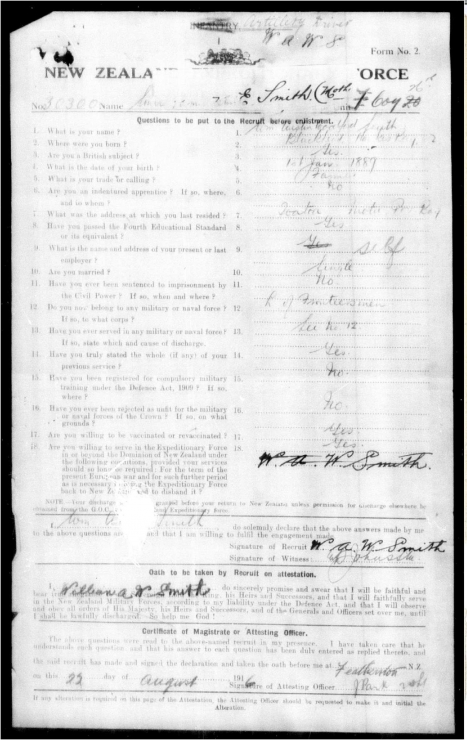 INFANTRY Artillery Driver
W A W S
Form No. 2.
NEW ZEALA FORCE
No. 30300 Name Smith
Questions to be put to the Recruit before enlistment.
1. What is your name ? 1. Smith
2. Where were you born ? 2.
3. Are you a British subject ? 3. Yes
4. What is the date of your birth ? 4. 1st Jany. 1889
5. What is your trade or calling ? 5.
6. Are you an indentured apprentice ? If so, where, 6. No
and to whom ?
7. What was the address at which you last resided ? 7.
8. Have you passed the Fourth Educational Standard 8. Yes
or its equivalent ?
9. What is the name and address of your present or last 9. Self
employer ?
10. Are you married ? 10. Single
11. Have you ever been sentenced to imprisonment by 11. No.
the Civil Power ? If so, when and where ?
12. Do you now belong to any military or naval force ? 12. of Frontiersmen
If so, to what corps ?
13. Have you ever served in any military or naval force ? 13. See No 12
If so, state which and cause of discharge.
14. Have you truly stated the whole (if any) of your 14. Yes.
previous service ?
15. Have you been registered for compulsory military 15. No.
training under the Defence Act, 1909 ? If so,
where ?
16. Have you ever been rejected as unfit for the military 16. No.
or naval forces of the Crown ? If so, on what
grounds ?
17. Are you willing to be vaccinated or revaccinated ? 17. Yes
18. Are you willing to serve in the Expeditionary Force 18. Yes.
in or beyond the Dominion of New Zealand under
the following conditions, provided your services
should so long be required: For the term of the
present European war and for such further period
as is necessary to bring the Expeditionary Force
back to New Zealand and to disband it ?
W. A. W. Smith.
NOTE.—Your discharge before your return to New Zealand unless permission for discharge elsewhere be
obtained from the G.O.C. Expeditionary Force.
I, Wm Smith do solemnly declare that the above answers made by me
to the above questions are and that I am willing to fulfil the engagement made.
Signature of Recruit W. A. W. Smith
Signature of Witness
Oath to be taken by Recruit on attestation.
I, William A. W. Smith do sincerely promise and swear that I will be faithful and
bear his Heirs and Successors, and that I will faithfully serve
in the New Zealand Military Forces, according to my liability under the Defence Act, and that I will observe
and obey all orders of His Majesty, his Heirs and Successors, and of the Generals and Officers set over me, until
I shall be lawfully discharged. So help me God !
Certificate of Magistrate or Attesting Officer.
The above questions were read to the above-named recruit in my presence. I have taken care that he
understands each question and that his answer to each question has been duly entered as replied thereto, and
the said recruit has made and signed the declaration and taken the oath before me at Featherston N.Z.
on this 22 day of August 1916
Signature of Attesting Officer
If any alteration is required on this page of the Attestation, the Attesting Officer should be requested to make it and initial the
Alteration.